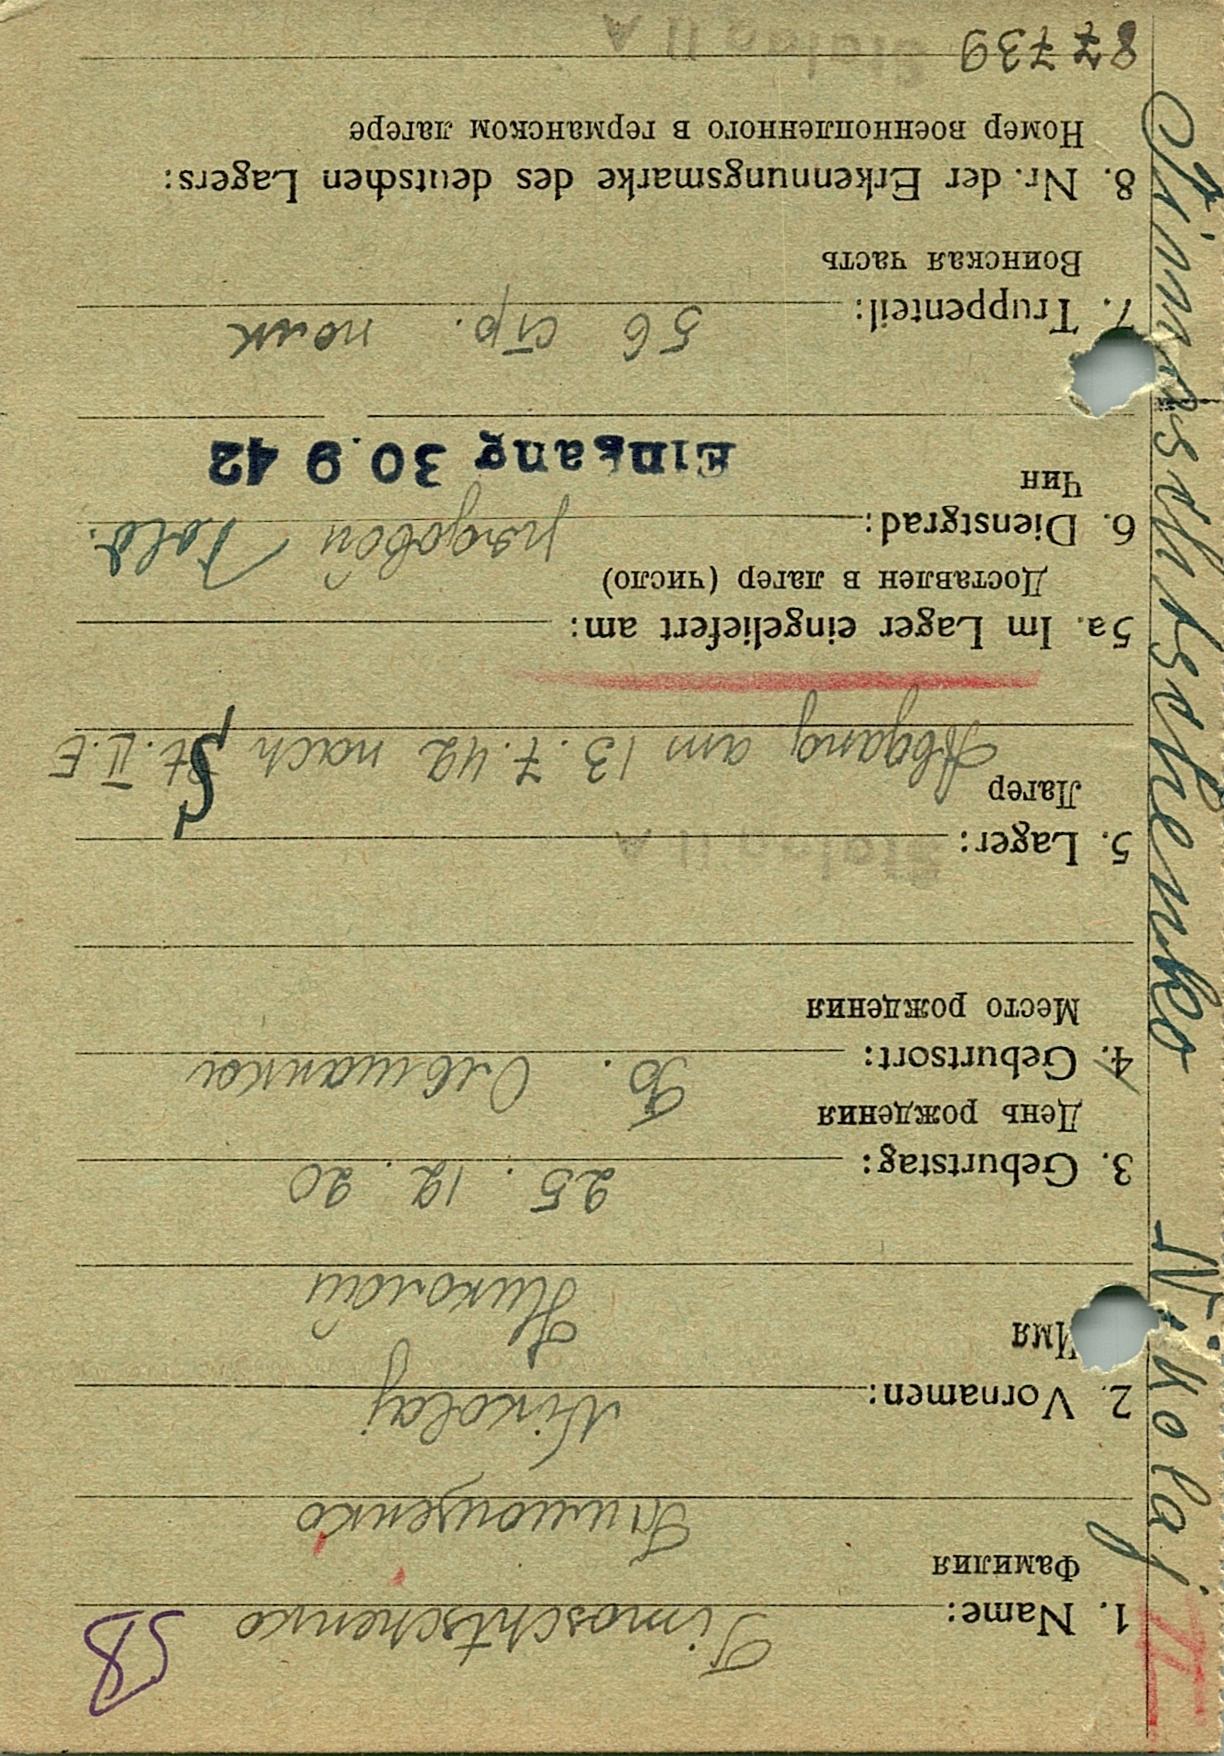 Timoschtschenko Nikolaj
1. Name: Timoschtschenko
Фамилия
Тимощенко
2. Vornamen: Nikolaj
Имя
Николай
3. Geburtstag: 25. 12. 20
День рождения
4. Geburtsort: В. Ольшанка
Место рождения
5. Lager: Stalag II A
Лагер
Abgang am 13. 7. 42 nach St. II. E
5a. Im Lager eingeliefert am:
Доставлен в лагер (число)
6. Dienstgrad: рядовой Sold.
Чин
Eingang 30. 9 42
7. Truppenteil: 56 стр. полк
Воинская часть
8. Nr. der Erkennungsmarke des deutschen Lagers:
Номер военнопленного в германском лагере
87739 Stalag II A